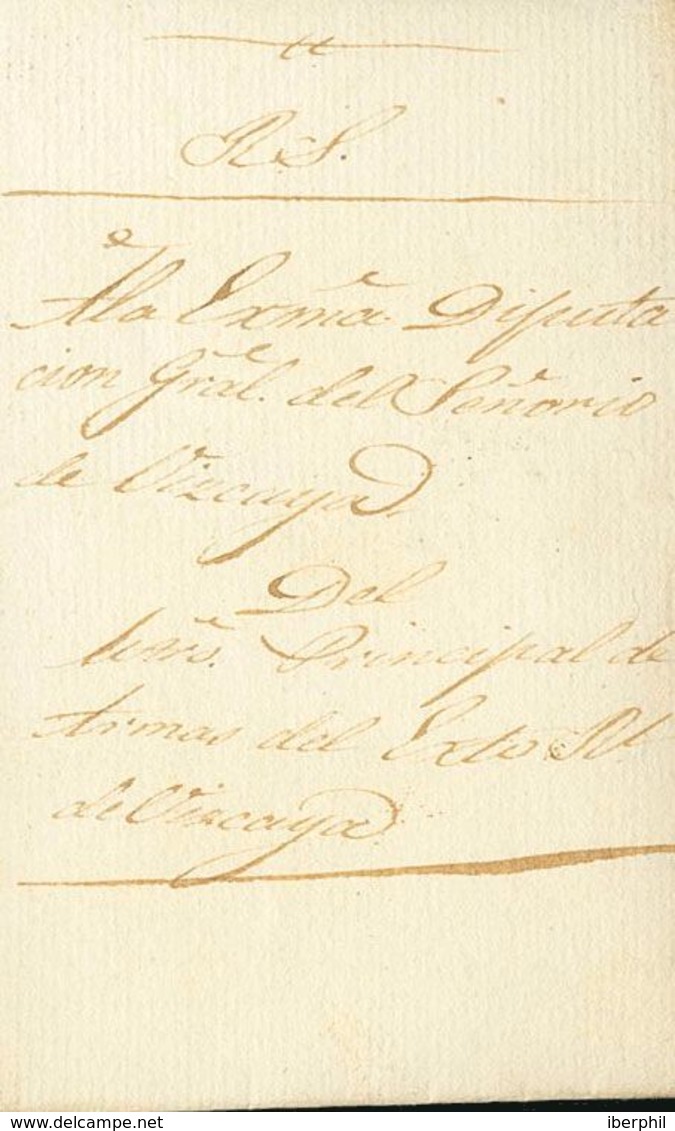 R.S.
A la Exma. Diputa
cion Gral. del Señorio
de Vizcaya
Del
Principal de
Armas del Exto. Rl.
de Vizcaya
www.delcampe.net
iberphil